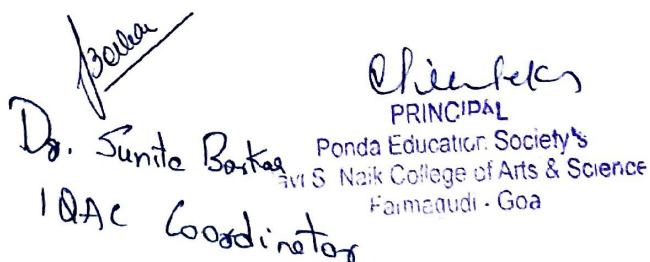 Borkar
Dr. Sunita Borkar
IQAC Coordinator
PRINCIPAL
Ponda Education Society's
avi S. Naik College of Arts & Science
Farmagudi - Goa